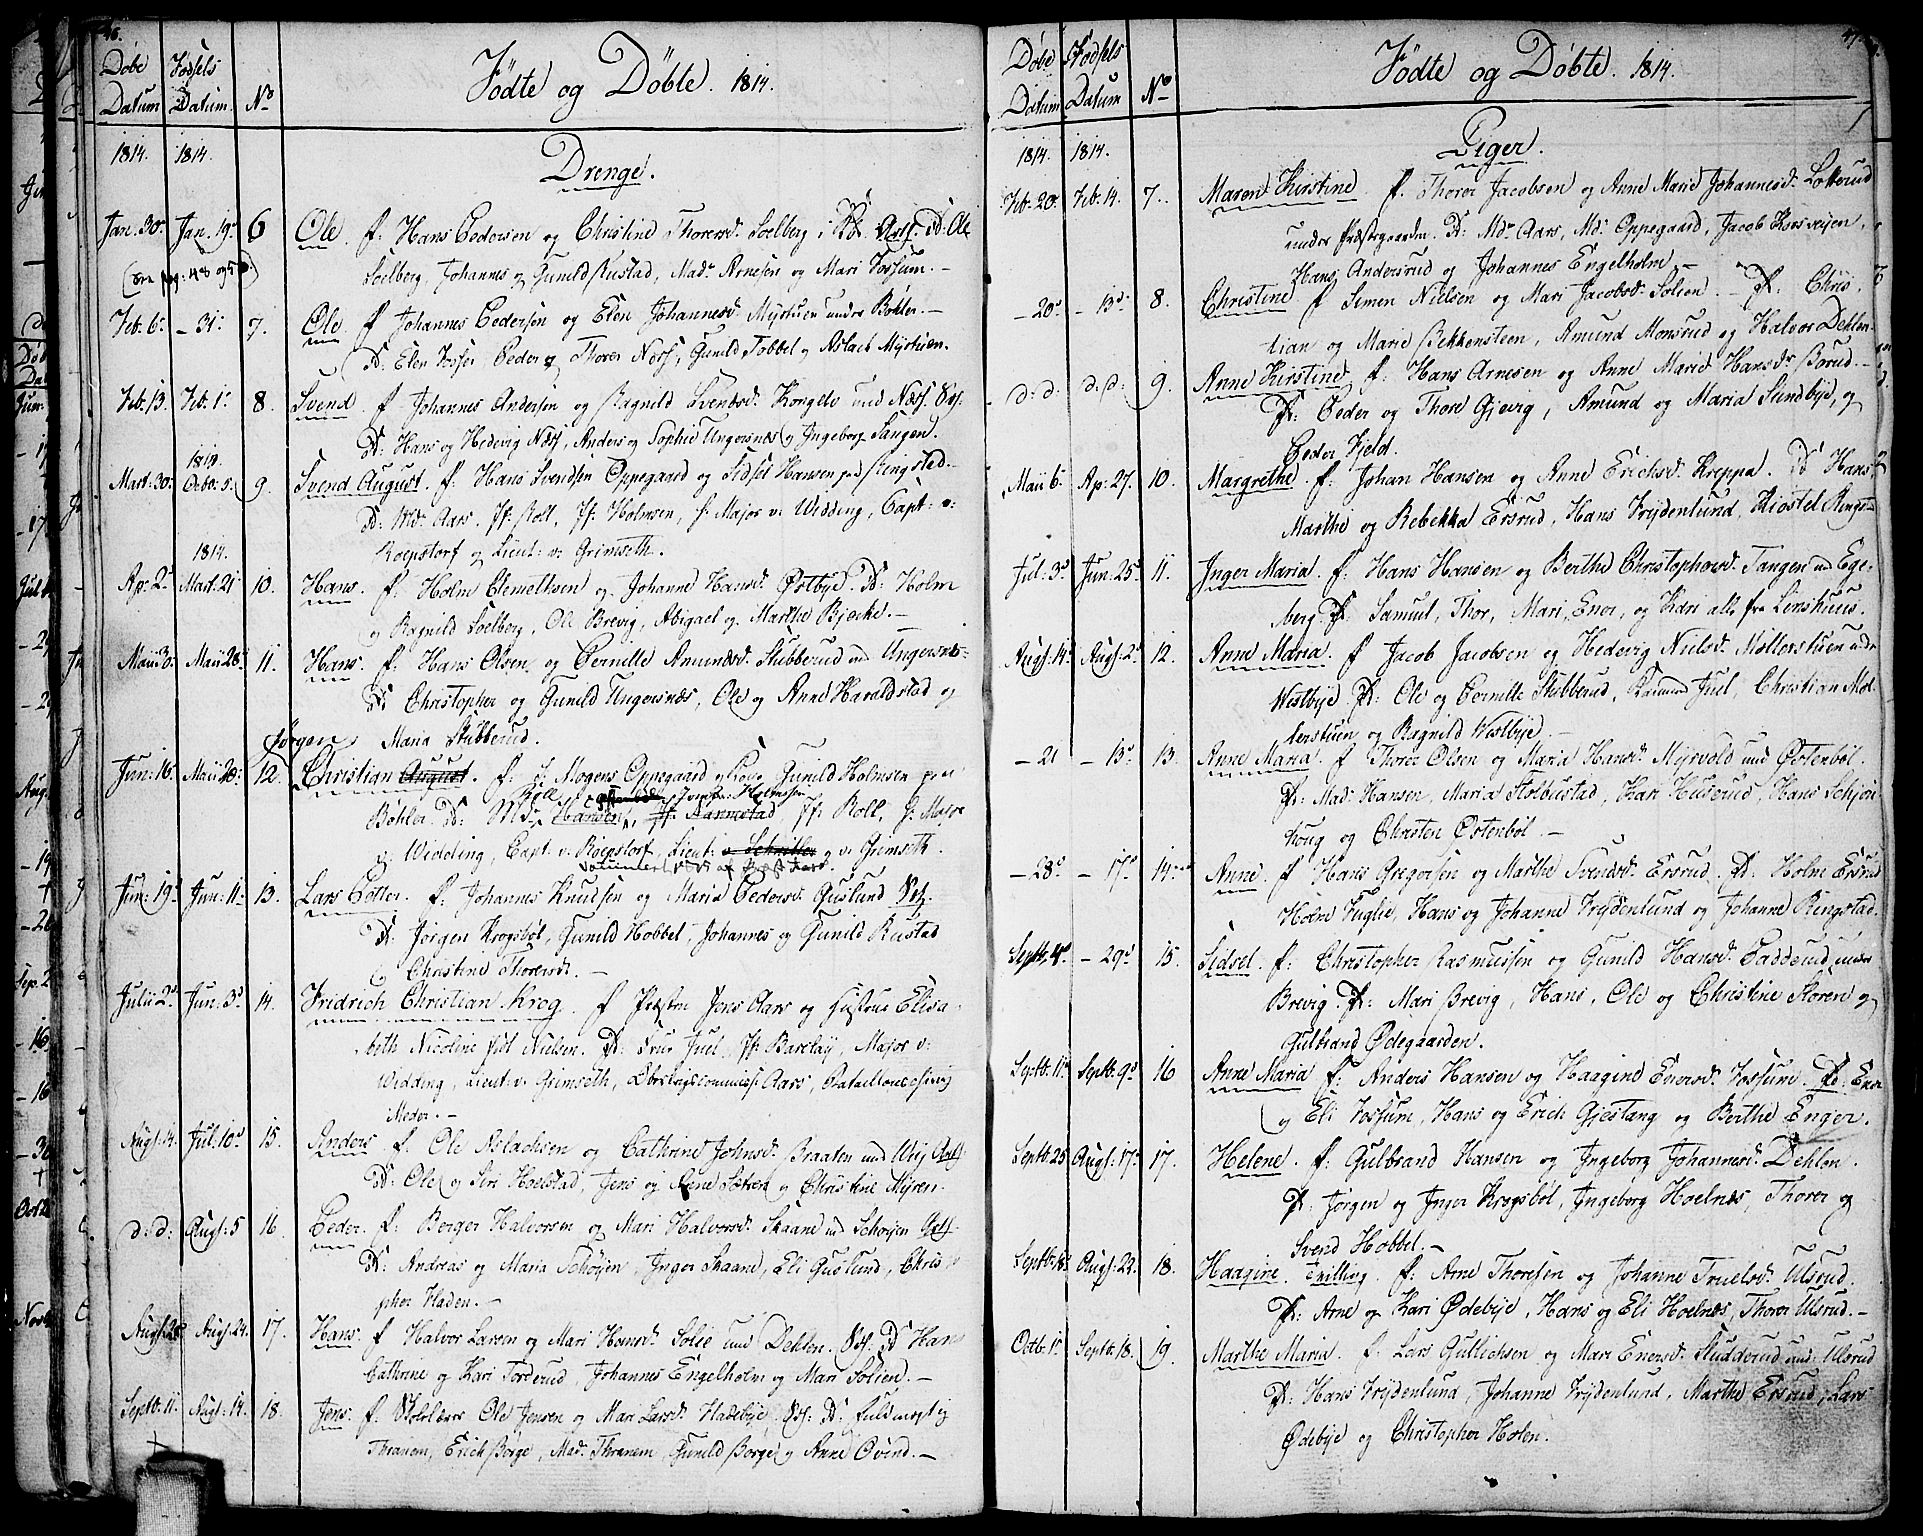 46.
Døbe Fødsels
Datum Datum. No
Födte og Döbte. 1814.
1814. 1814.
Drenge.
Jan. 30. Jan. 19d 6 Ole. f: Hans Pedersen og Christine Thorersd. Soelberg i D: Ole
Soelberg, Johannes og Gunild Rustad, Mad. Arnesen og Mari Fossum.-
Feb. 6. - 31. 7. Ole. f Johannes Pedersen og Elen Johannesd. Myrstuen under Böhler.-
D: Elen Peder og Thorer Næss, Gunild Tobbel og Aslach Myrstuen.
Feb. 13. Feb. 1. 8. Svend. f Johannes Andersen og Ragnild Svensd. Kongele und Næss.
D: Hans og Hedevig Næss, Anders og Sophie Ungersnæs og Ingeborg Tangen.
1813.
Mart. 30. Octo. 5. 9. Svend August. f: Hans Svendsen Oppegaard og Sidsel Hansen paa Ringstad.
D: Md. Aars. Jf. Roll, Jf: Holmsen, H. Major v: Widding, Capt. v:
Roepstorf og Lieut: v: Grimseth.
1814.
Ap. 2. Mart. 21 10. Hans. f: Holm Clemethsen og Johanne Hansd. Østbye. D: Holm
og Ragnild Soelberg, Ole Brevig, Abigael og Marthe Bjerke.-
Maii 30. Maii 28. 11. Hans. f: Hans Olsen og Pernille Amundsd. Stubberud und Ungersnæs
D: Christopher og Gunild Ungersnæs, Ole og Anne Haraldstad og
Maria Stubberud.
Jørgen
Jun: 16. Maii 20. 12. Christian August. f: Mogens Oppegaard og Kone Gunild Holmsen paa
Böhler. D: Md. Hansen, Jf: Aannestad Jf: Roll, H: Major
v: Widding, Capt. v. Roepstorf, Lieut: v. Schnitler og v: Grimseth.
Jun: 19. Jun: 11. 13. Lars Petter. f: Johannes Knudsen og Maria Pedersd. Guslund
D: Jörgen Krogsböl, Gunild Hobbel, Johannes og Gunild Rustad
og Christine Thorersd. -
Julii 2d. Jun. 3d. 14. Fridrich Christian Krog. f Præsten Jens Aars og Hustrue Elisa-
beth Nicoline född Nielsen. D: Frue Juel, Jf: Barclay, Major v:
Widding, Lieut. v. Grimseth, Aars, Batallionschirurg
Meder.-
Augs. 14. Jul. 10d 15. Anders f. Ole Aslachsen og Cathrine Johnsd. Braaten und
D: Ole og Siri Hoelstad, Jens og Anne Sætren og Christine Myren.
d: d: Augs: 5 16. Peder. f: Berger Halvorsen og Mari Halvorsd. Skaane und Schøyen
D: Andreas og Maria Schøyen, Inger Skaane, Eli Guslund, Chris
pher Haden.-
Augs: 28 Augs: 24. 17. Hans. f Halvor Larsen og Mari Hansd. Solie und Dehlen. D: Han
Cathrine og Kari Torderud, Johannes Engelholm og Mari Solien. -
Septb: 11. Augs: 14. 18. Jens. f. Skolelærer Ole Jensen og Mari Larsd. Hadebye. D: Fuldmegtig
Thranem, Erich Borge, Mad. Thranem, Gunild Borge og Anne Ovind.-
47.
Døbe Fødsels
Datum Datum No
Födte og Döbte. 1814.
1814. 1814.
Piger.
Feb. 20. Feb. 14. 7. Maren Kirstine f. Thorer Jacobsen og Anne Marie Johannesd. Lotterud
under Præstegaarden. D: Md. Aars, Md: Oppegaard, Jacob Korsveyen,
Hans Andersrud og Johannes Engelholm.-
- 20. - 13. 8. Christine f Simen Nielsen og Mari Jacobsd. Solien. - D: Chris-
tian og Marie Bekkensteen, Amund Monsrud og Halvor Dehlen
d: d: d. d: 9. Anne Kirstine f: Hans Arnesen og Anne Marie Hansd. Borud.-
D: Peder og Thore Gjevig, Amund og Maria Sundbye, og
Peder Kjeld.
Maii 6. Ap: 27. 10. Margrethe. f: Johan Hansen og Anne Erichsd. Kreppa. D: Hans
Marthe og Rebekka Ersrud, Hans Frydenlund, Kiostel Ringst
Jul: 3. Jun: 25. 11. Inger Maria. f: Hans Hansen og Berthe Christophersd. Tangen und Ege-
berg. D: Samuel, Thor, Mari, Ener, og Kari alle fra Lenshuus.
Augs. 14. Augs. 2. 12. Anne Maria. f Jacob Jacobsen og Hedevig Nielsd. Möllerstuen under
Westbye. D: Ole og Pernille Stubberud, Rasmus Juel, Christian Möl-
lerstuen og Ragnild Westbye.-
- 21 - 13. 13. Anne Maria. f Thorer Olsen og Maria Hansd. Myrvold und Østenböl.
D: Mad: Hansen, Maria Stubustad, Kari Huserud, Hans Schjön-
houg og Christen Østenböl.-
- 28. - 17. 14. Anne. f Hans Gregersen og Marthe Svendsd. Ersrud. D: Holm Ersrud
Holm Fuglie, Hans og Johanne Frydenlund og Johanne Ringstad.
Septb: 4. - 29. 15. Sidsel. f: Christopher Rasmussen og Gunild Hansd. Padderud under
Brevig. D: Mari Brevig, Hans, Ole og Christine Storen og
Gulbrand Ødegaarden.
Septb: 11. Septb: 9. 16 Anne Maria f: Anders Hansen og Haagine Enersd. Fossum. D: Ener
og Eli Fossum, Hans og Erich Gjestang og Berthe Enger.
Septb: 25 Augs: 17. 17. Helene. f: Gulbrand Hansen og Ingeborg Johannesd. Dehlen.
D: Jörgen og Inger Krogsböl, Ingeborg Hoelnæs, Thorer og
Svend Hobbel.-
Septb: 18. Augs: 22. 18. Haagine. Tvilling. f: Arne Thoresen og Johanne Truelsd. Ulsrud.
D: Arne og Kari Ødebye, Hans og Eli Hoelnæs, Thorer Ulsrud.-
Octb. 1. Septb: 18. 19. Marthe Maria. f. Lars Gullichsen og Mari Enersd. Studderud und: Ulsrud
D: Hans Frydenlund, Johanne Frydenlund, Marthe Ersrud, Lars
Ødebye og Christopher Holen.